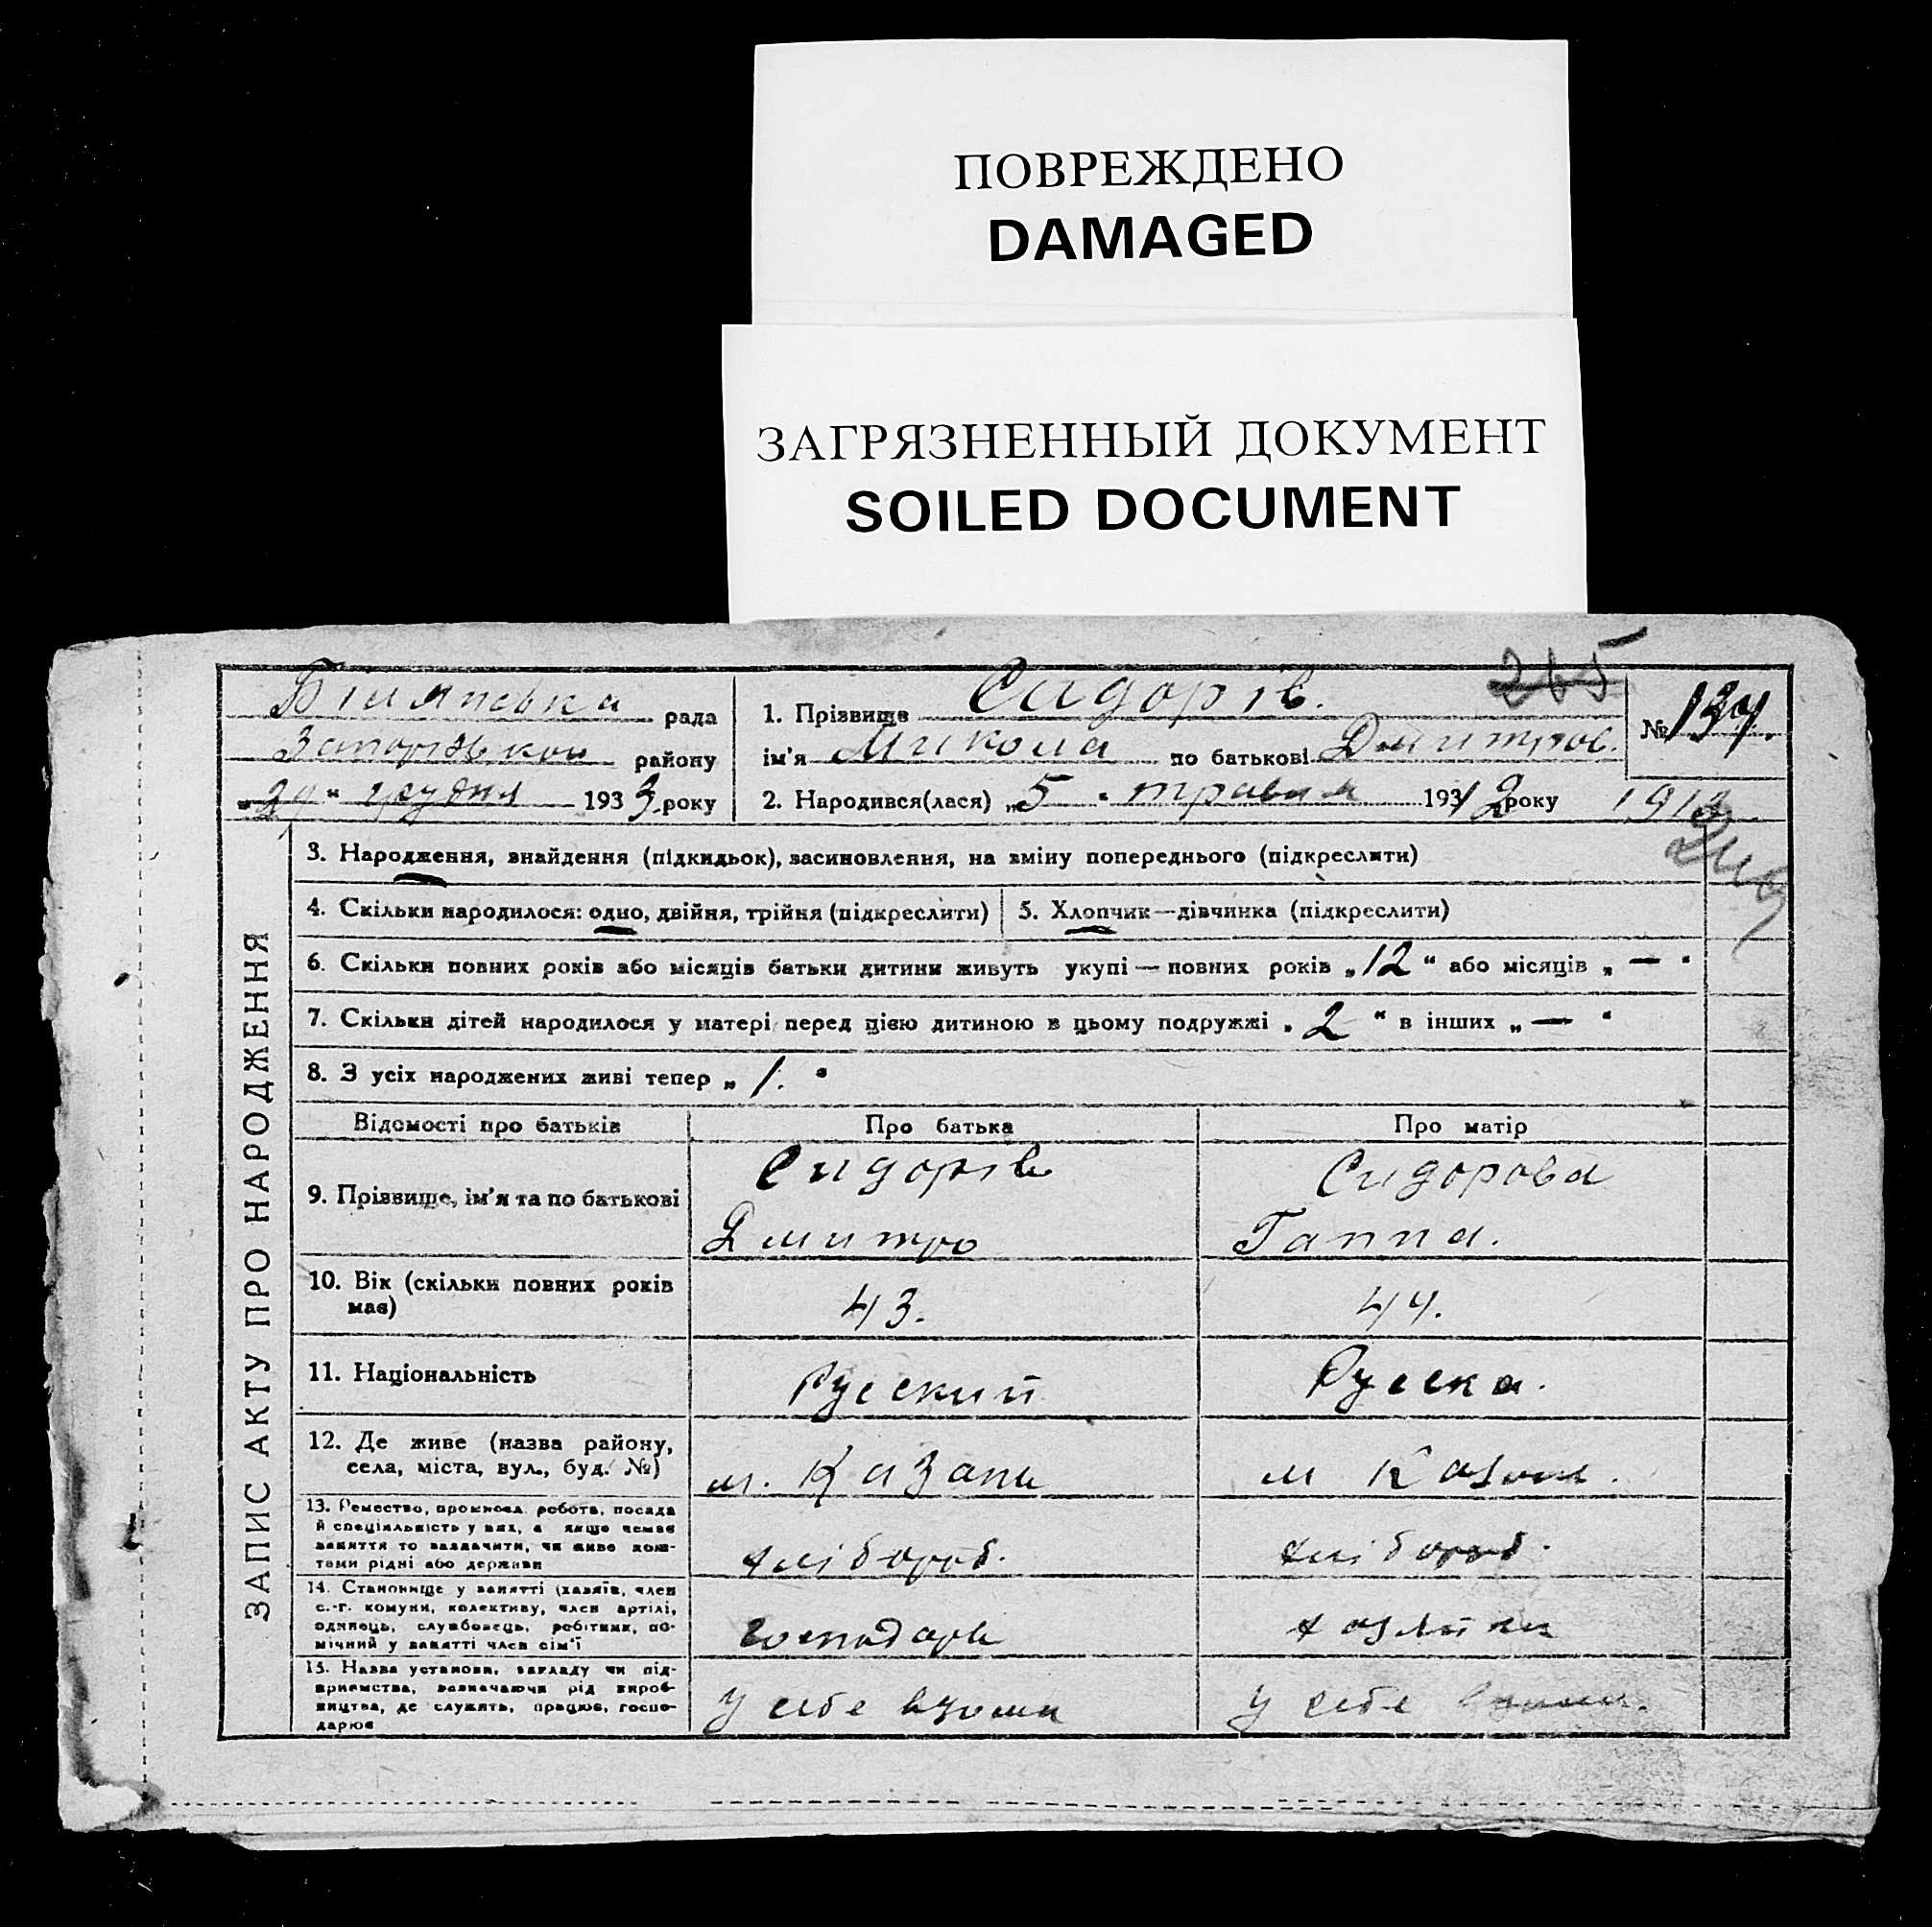 ПОВРЕЖДЕНО
DAMAGED
ЗАГРЯЗНЕННЫЙ ДОКУМЕНТ
SOILED DOCUMENT
265
рада
району
„29“ грудня 1933 року
1. Прізвище Сидорів.
ім'я Микола по батькові Дмитров.
№ 134.
2. Народився(лася) „5“ травня 193/2 року 1912
ЗАПИС АКТУ ПРО НАРОДЖЕННЯ
3. Народження, знайдення (підкидьок), засиновлення, на зміну попереднього (підкреслити)
4. Скільки народилося: одно, двійня, трійня (підкреслити)
5. Хлопчик—дівчинка (підкреслити)
6. Скільки повних років або місяців батьки дитини живуть укупі — повних років „12“ або місяців „—“
7. Скільки дітей народилося у матері перед цією дитиною в цьому подружжі „2“ в інших „—“
8. З усіх народжених живі тепер „1.“
Відомості про батьків Про батька Про матір
9. Прізвище, ім'я та по батькові
Сидорів
Дмитро
Сидорова
Ганна.
10. Вік (скільки повних років має)
43.
44.
11. Національність
Руский
Руска.
12. Де живе (назва району,
села, міста, вул., буд. №)
м. Казань
м Казань.
13. Ремество, промисел, робота, посада
й спеціяльність у них, а якщо немає
заняття то зазначити, чи живе кош-
тами рідні або держави
хлібороб.
хлібороб.
14. Становище у занятті (хазяїн, член
с.-г. комуни, колективу, член артілі,
одинець, службовець, робітник, по-
мічний у занятті член сім'ї
господарь
хазяйка
15. Назва установи, закладу чи під-
приємства, зазначаючи рід вироб-
ництва, де служить, працює, госпо-
дарює
у себе вдома
у себе вдома.